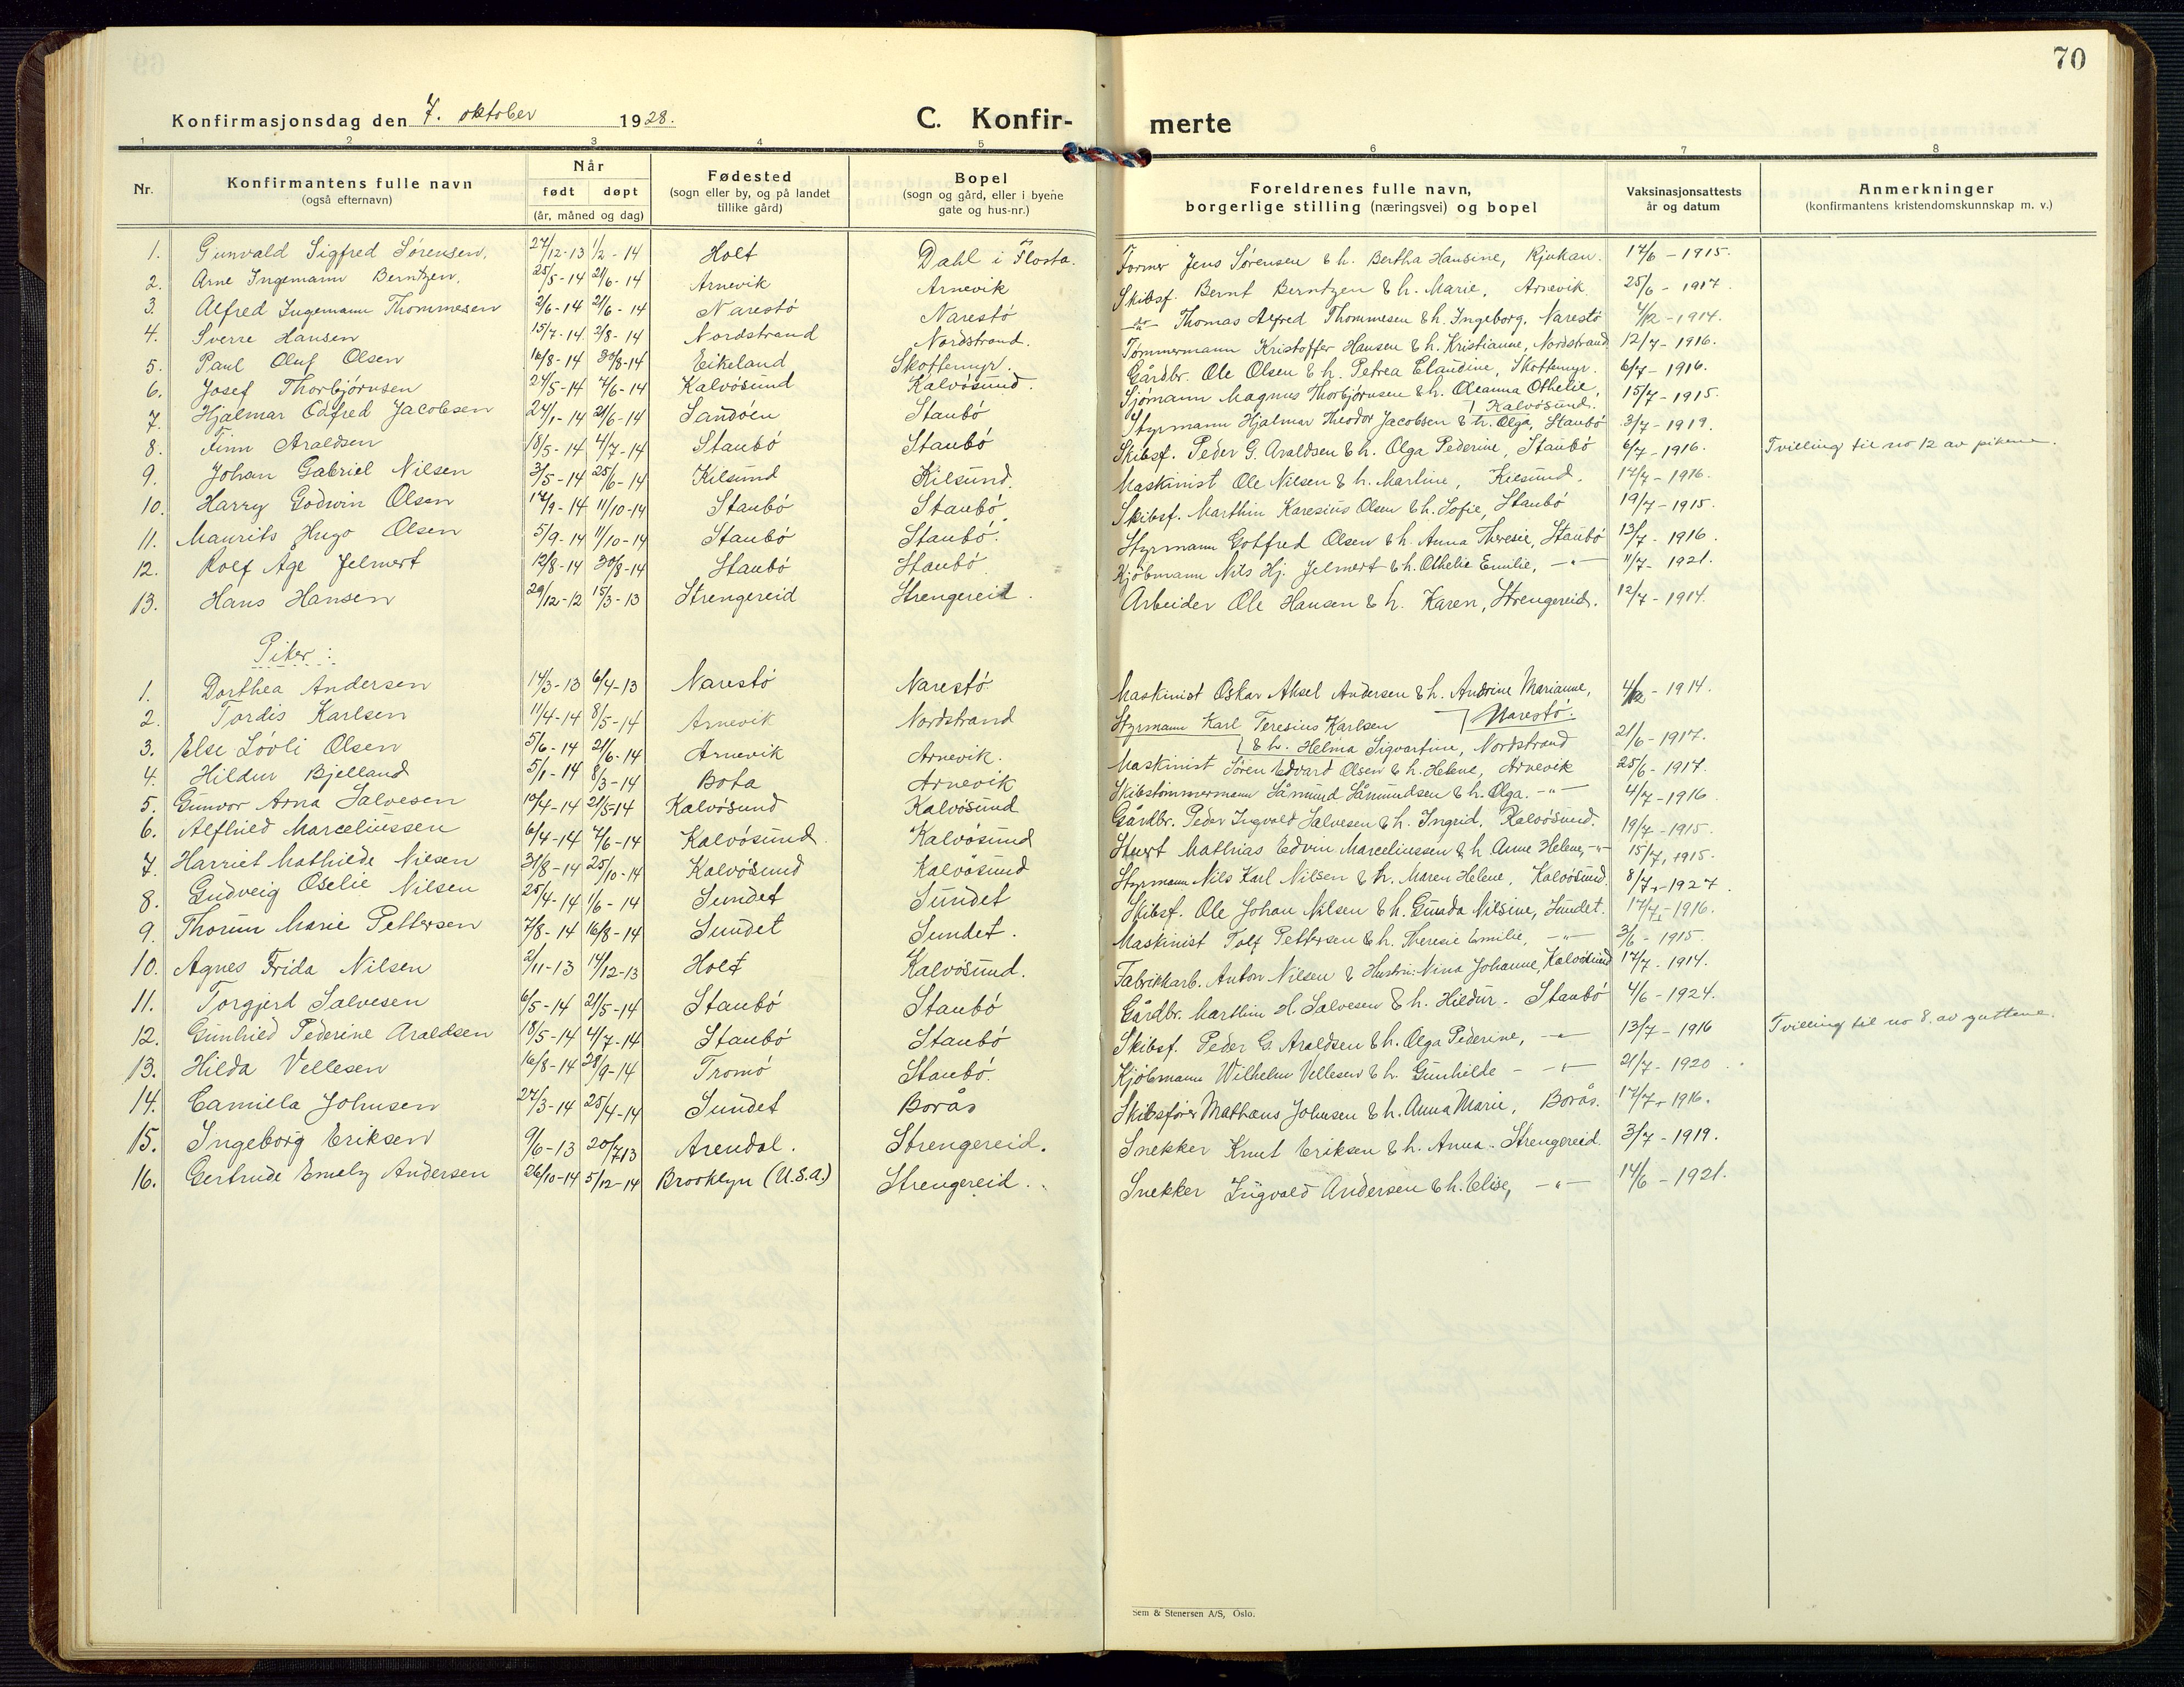 70
Konfirmasjonsdag den 7. oktober 1928.
C. Konfir- merte
1 2 3 4 5 6 7 8
Nr. Konfirmantens fulle navn (også efternavn) Når født døpt (år, måned og dag) Fødested (sogn eller by, og på landet tillike gård) Bopel (sogn og gård, eller i byene gate og hus-nr.) Foreldrenes fulle navn, borgerlige stilling (næringsvei) og bopel Vaksinasjonsattests år og datum Anmerkninger (konfirmantens kristendomskunnskap m. v.)
1. Gunvald Sigfred Sørensen, 27/12-13 1/2-14 Holt Dahl i Flosta. Former Jens Sørensen & h. Bertha Hansine, Rjukan. 17/6-1915.
2. Arne Ingemann Berntzen, 25/5-14 21/6-14 Arnevik Arnevik Skibsf. Bernt Berntzen & h. Marie, Arnevik 25/6-1917.
3. Alfred Ingemann Thommesen 2/6-14 21/6-14 Narestö Narestö -do- Thomas Alfred Thommesen & h. Ingeborg, Narestö 4/12-1914.
4. Sverre Hansen 15/7-14 2/8-14 Nordstrand Nordstrand. Tømmermann Kristoffer Hansen & h. Kristianne, Nordstrand 12/7-1916.
5. Paul Oluf Olsen 16/8-14 30/8-14 Eikeland Skottemyr. Gårdbr. Ole Olsen & h. Petrea Claudine, Skottemyr. 6/7-1916.
6. Josef Thorbjørnsen 24/5-14 7/6-14 Kalvösund Kalvösund. Sjömann Magnus Thorbjørnsen & h. Oleanna Othelie, Kalvösund. 15/7-1915.
7. Hjalmar Odfred Jacobsen 24/1-14 21/6-14 Sandöen Staubö Styrmann Hjalmar Theodor Jacobsen & h. Olga, Staubö 3/7-1919.
8. Finn Araldsen 18/5-14 4/7-14 Staubö Staubö Skibsf. Peder G. Araldsen & h. Olga Pederine, Staubö 6/7-1916. Tvilling til no 12 av pikene.
9. Johan Gabriel Nilsen 3/5-14 25/6-14 Kilsund Kilsund. Maskinist Ole Nilsen & h. Martine, Kilsund. 17/7-1916.
10. Harry Godwin Olsen 17/9-14 11/10-14 Staubö Staubö Skibsf. Marthin Karesius Olsen & h. Sofie, Staubö 19/7-1915.
11. Maurits Hugo Olsen 5/9-14 11/10-14 Staubö Staubö. Styrmann Gotfred Olsen & h. Anna Theresie, Staubö 13/7-1916.
12. Rolf Åge Jelmert 12/8-14 30/8-14 Staubö Staubö Kjöbmann Nils Hj. Jelmert & h. Othelie Emilie, -"- 11/7-1921.
13. Hans Hansen 29/12-12 15/3-13 Strengereid Strengereid. Arbeider Ole Hansen & h. Karen, Strengereid. 12/7-1914.
Piker:
1. Dorthea Andersen 14/3-13 6/4-13 Narestö Narestö Maskinist Oskar Aksel Andersen & h. Andrine Marianne, Narestö. 4/12-1914.
2. Tordis Karlsen 11/4-14 8/5-14 Arnevik Nordstrand Styrmann Karl Teresius Karlsen & h. Helma Sigvartine, Nordstrand 21/6-1917.
3. Else Lövli Olsen 5/6-14 21/6-14 Arnevik Arnevik. Maskinist Sören Edvard Olsen & h. Helene, Arnevik 25/6-1917.
4. Hildur Bjelland 5/1-14 8/3-14 Bota Arnevik Skibstömmermann Såmund Såmundsen & h. Olga. -"- 4/7-1916
5. Gunvor Arna Salvesen 10/4-14 21/5-14 Kalvösund Kalvösund Gårdbr. Peder Ingvald Salvesen & h. Ingrid. Kalvösund. 19/7-1915.
6. Alfhild Marceliussen 6/4-14 7/6-14 Kalvösund Kalvösund Stuert Mathias Edvin Marceliussen & h. Anne Helene, -"- 15/7, 1915.
7. Harriet Mathilde Nilsen 31/8-14 25/10-14 Kalvösund Kalvösund Styrmann Nils Karl Nilsen & h. Maren Helene, Kalvösund. 8/7-1927.
8. Gudveig Oselie Nilsen 25/4-14 1/6-14 Sundet Sundet Skibsf. Ole Johan Nilsen & h. Gunda Nilsine, Sundet. 17/7-1916.
9. Thorun Marie Pettersen 7/8-14 16/8-14 Sundet Sundet. Maskinist Tolf Pettersen & h. Theresie Emilie, -"- 3/6-1915.
10. Agnes Frida Nilsen 2/11-13 14/12-13 Holt Kalvösund. Fabrikkarb. Anton Nilsen & Hustru: Nina Johanne, Kalvösund 17/7-1914.
11. Torgjerd Salvesen 6/5-14 21/5-14 Staubö Staubö Gårdbr. Marthin H. Salvesen & h. Hildur - Staubö 4/6-1924.
12. Gunhild Pederine Araldsen 18/5-14 4/7-14 Staubö Staubö Skibsf. Peder G. Araldsen & h. Olga Pederine, -"- 13/7-1916 Tvilling til no 8. av guttene.
13. Hilda Vellesen 16/8-14 28/9-14 Tromö Staubö. Kjöbmann Wilhelm Vellesen & h. Gunhilde - -"- 21/7-1920
14. Camilla Johnsen 27/3-14 25/4-14 Sundet Borås Skibsförer Mathæus Johnsen & h. Anna Marie, Borås. 17/7-1916.
15. Ingeborg Eriksen 9/6-13 20/7 13 Arendal. Strengereid. Snekker Knut Eriksen & h. Anna - Strengereid. 3/7-1919.
16. Gertrude Emely Andersen 26/10-14 5/12-14 Brooklyn (U.S.A.) Strengereid. Snekker Ingvald Andersen & h. Elise, -"- 14/6-1921.
Sem & Stenersen A/S, Oslo.